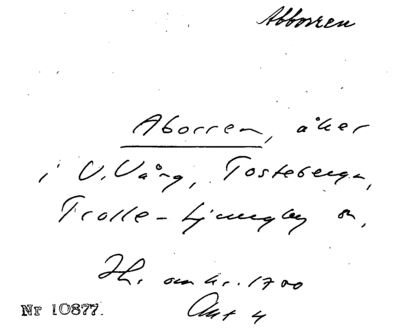 Abborren
Aborren, åker
i V. Vång, Tosteberga,
Trolle-Ljungby sn,
Hr. omkr. 1700
Akt 4
Nr 10877.